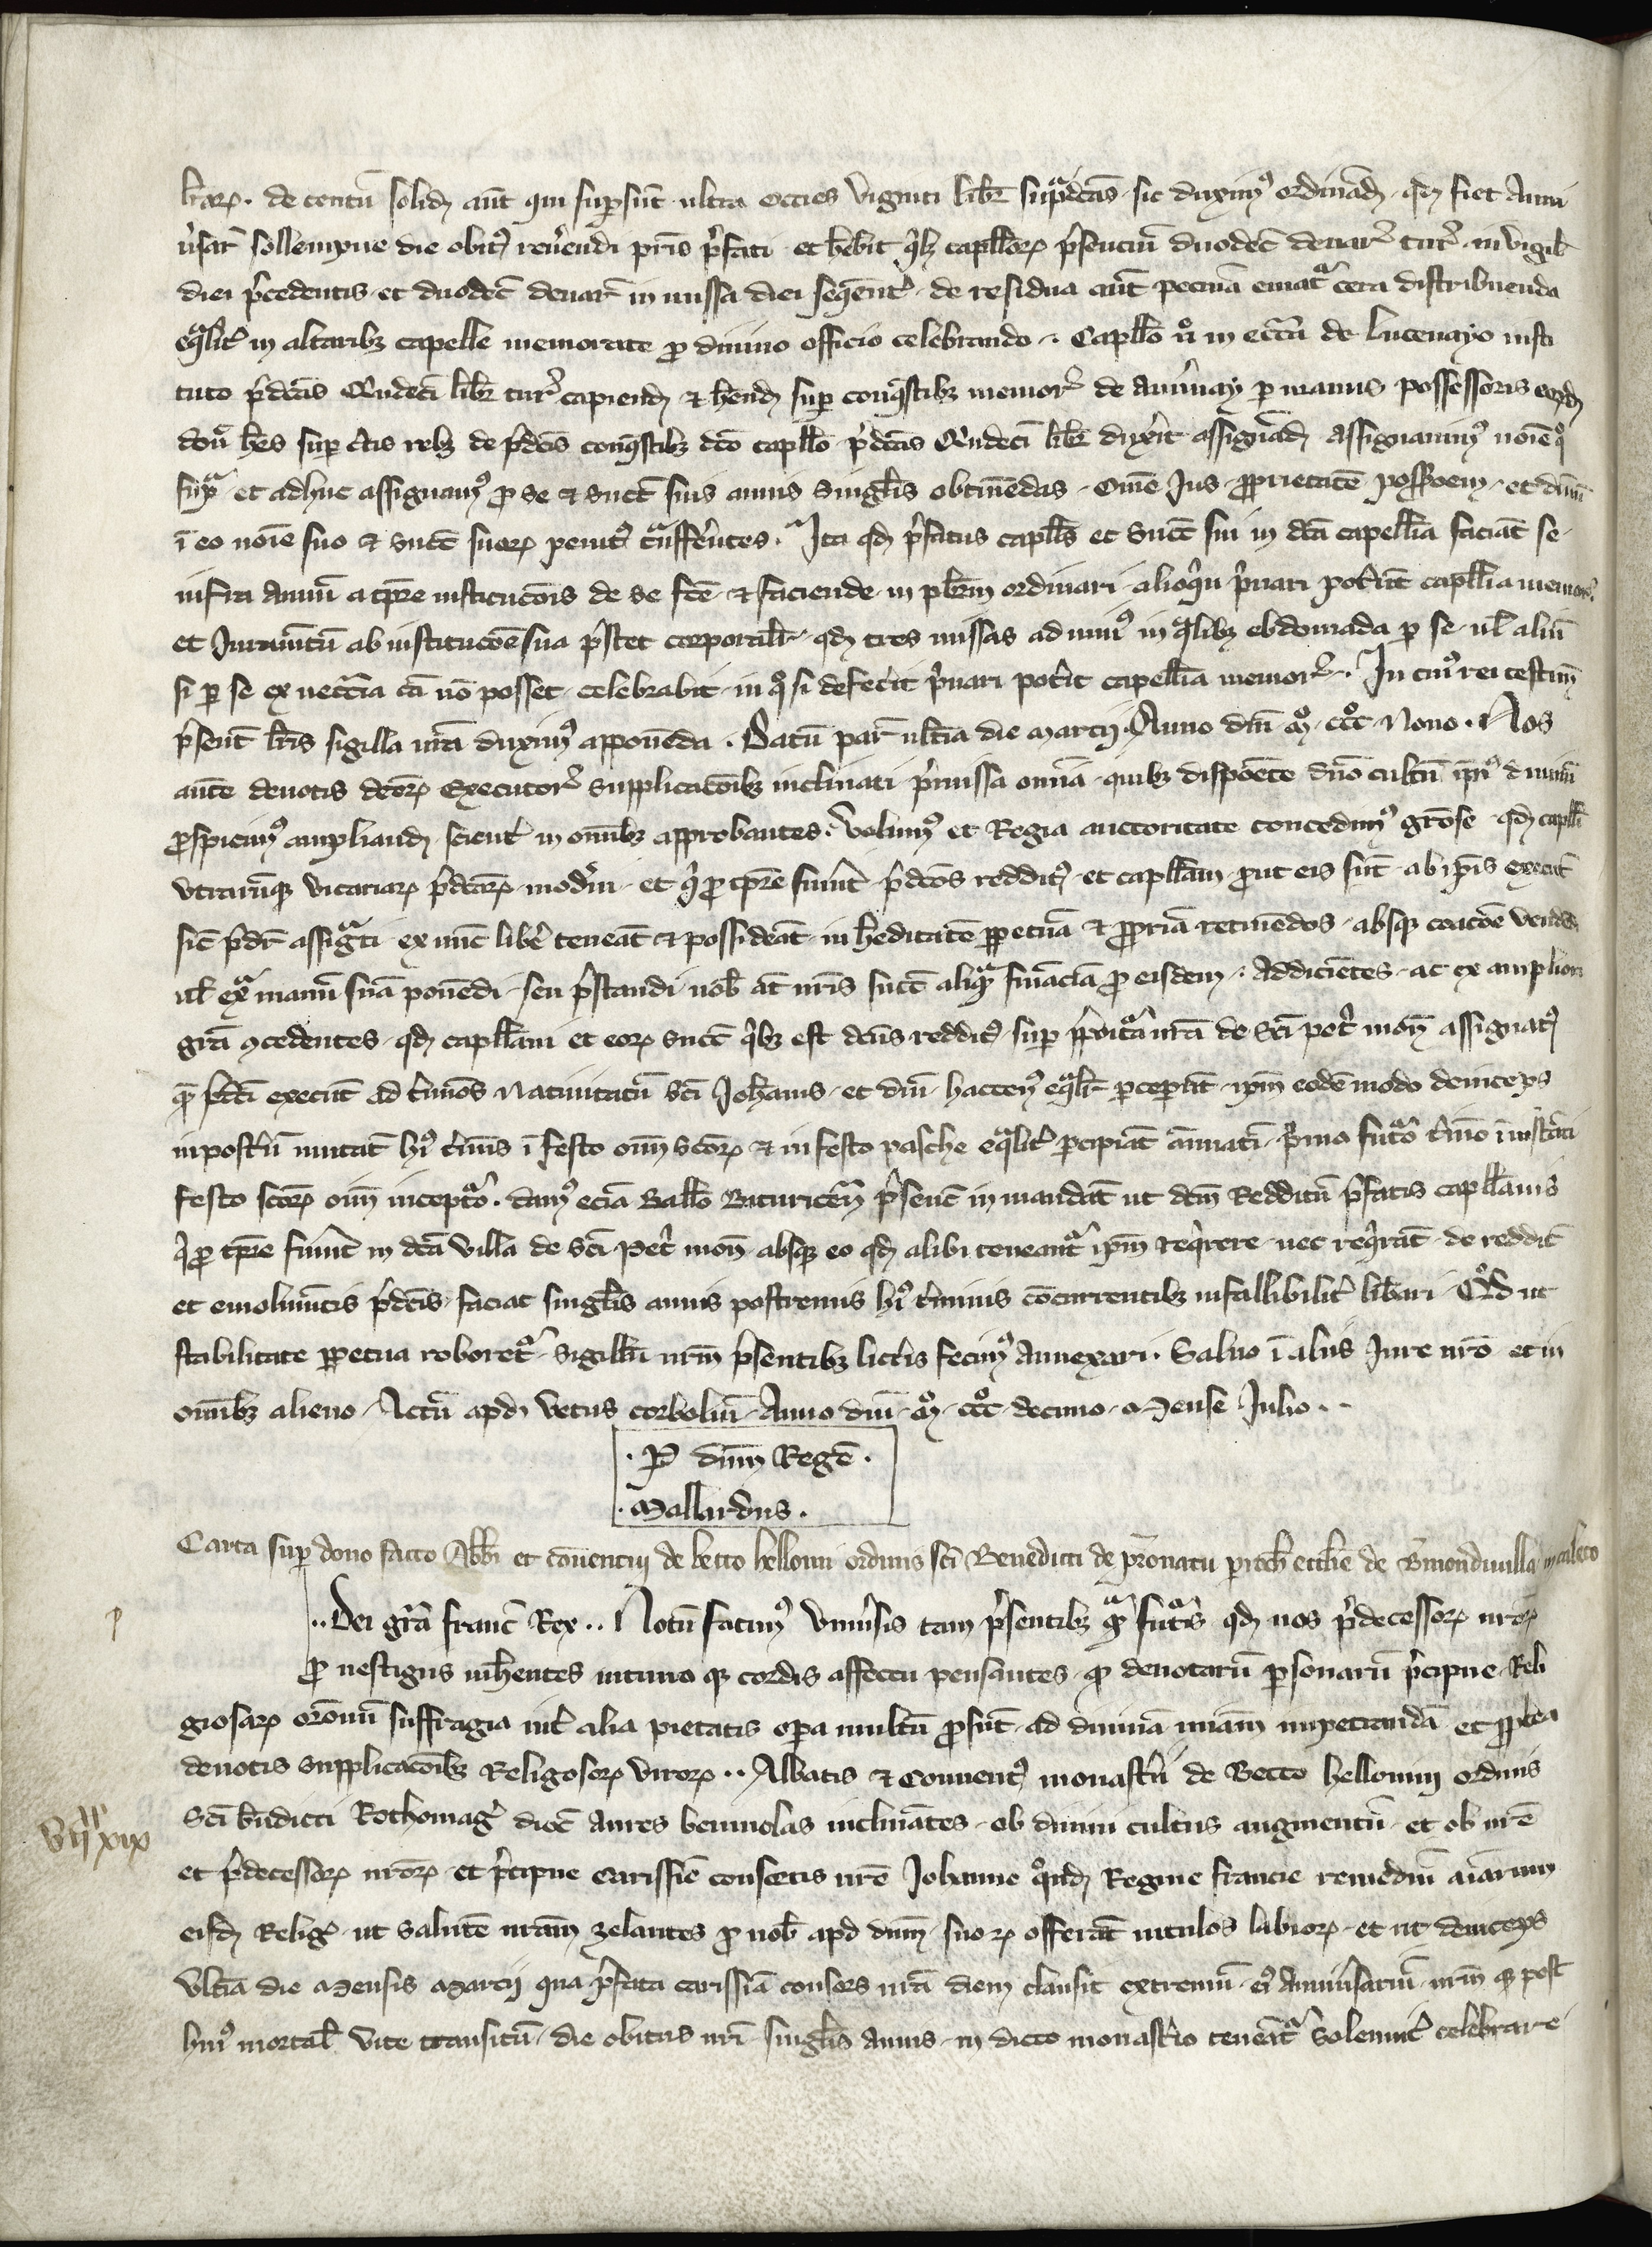 lrarꝝ. de centū solidꝫ aūt qui supersūt ultra octies viginti libr̄ supradcās sic duximꝰ ordinādꝫ qdꝫ fiet anni
v̓sar̄ sollempne die obitꝰ reu̓endi pr̄is p̓fati et hēbit q̓lꝫ capłłorꝝ p̓senciū duodecī denar̓ tur̓. in vigił
diei p̓cedentis et duodecī denar̄ in missa diei sequēt̓. de residua aūt pecunia emat̓ cera distribuenda
eq̓lit̓ in altaribꝫ capelle memorate p̱ diuino officio celebrando. Capłło ṽo in ecc̄ia de Lucenayo insti
tuto p̓dcās Qndeci libr̄ tur̓ capiendꝫ & hēndꝫ sup conq̓stibꝫ memor̓ de per manus possessoris eorūdꝫ
donec hēs sup cīis rebꝫ de p̓dcīs conq̓stibꝫ dcō capłło p̓dcās Qndeci libr̄ duxerit assignādꝫ assignauimꝰ noīe quo
sup̃ et adhuc assignamꝰ p̱ se & succ̄ suis annis singłis obtinēdas. omē Jus proprietatē possoēm et dnīū
ī eo noīe suo & succ̄ suorꝝ penitꝰ tr̃nsferentes. Ita qdꝫ p̓fatus capłłs et succ̄ sui in dcā capellīa faciāt se
infra annū a tpre institucōis de se fcē & faciende in pbrm̄ ordinari alioq̓n p̓uari pot̓ūt capłłia memor̓.
et Juramtū ab institucōe sua p̓stet corporalit̓ qdꝫ tres missas ad minꝰ in q̓libꝫ ebdomada p se uł aliū
si per se ex necc̄ia cā nō posset celebrabit. in qͦ si defec̓it p̓uari pot̓it capellīa memor̓. In cuiꝰ rei testim̄
p̓sent̄ lr̄is sigilla nr̄a duximꝰ apponēda. Datū par̄ ultīa die marcij. Anno dnī mͦ. cccͦ. Nono. Nos
autē deuotis dcōrꝝ Executor̓ supplicacōibꝫ inclinati p̓missa omīa quibꝫ dispoēte dnō cultū ipiꝰ diuinū
p̱spicimꝰ ampliandꝫ scient̓ in omībꝫ approbantes. Volumꝰ et Regia auctoritate concedimꝰ grōse qdꝫ capłłi
vtrarūqꝫ vicariarꝝ p̓dcārꝝ mod̓ni et q̓ p̱ tpre fuint̄ p̓dcōs redditꝰ et capłłam prout eis sūt ab ipīs execut̄
sic̄ p̓dr̄ assig̃ti ex nūc libe̓ teneāt & possideāt in hēditatē perpetuā & propriā retinēdos. absqꝫ coaccōe vendēdi
uł ex̃ manū suā ponēdi seu p̓standi nob̄ aut nr̄is succ̄ aliq̃ financiā p̱ eisdem. Addicientes ac ex ampliori
grā ꝯcedentes qdꝫ capłłani et eorꝝ succ̄ q̓bꝫ est dcūs redditꝰ sup p̱poitā nrā de Scī pet̓ mon̄ assignatꝰ
quē p̓dcī execut̄ ad t̓mios Natiuitatū Scī Joh̄annis et dnī hactenꝰ eq̓lit̓ perceperāt ipm eodē modo deinceps
inpost̓ū mutat̄ hiꝰ t̓mīs ī festo oīm scōrꝝ & in festo pasche eq̓lit̓ percipiāt annuatī. p̓mo futuro t̓mio ī instāti
festo scōrꝝ oīm incepturo. damꝰ eciā Ballō Bituricen̄ p̓sent̄ in mandat̄ ut dcm̄ Redditū p̓fatis capłłanis
q̓ p̱ tpre fuīnt in dcā villa de Scī Pet̓ mon̄ absqꝫ eo qdꝫ alibi teneant̓ ipm req̓rere nec req̓rāt. de reddit̄
et emolumtis p̓dcīs faciat singłis annis postremis hiꝰ t̓minis cōcurrentibꝫ infallibilit̓ libari. Qd ut
stabilitate perpetua roboret̓ sigillū nrm̄ p̓sentibꝫ litt̓is fecimꝰ annexari. Saluo ī aliis Jure nrō et in
omībꝫ alieno. Actū apdꝫ vetus corboliū. Anno dnī. mͦ. cccͦ. decimo. Mense Julio..
. Per dnm̄ Regē .
. Mallardus .
Carta sup dono facto Abbi et conuentui de becco hellouini ordinis scī Benedicti de pr̄onatu proch̄ eccłie de B̓mondiuilla in caleto
.. Dei grā franc̄ Rex .. Notū facimꝰ vniu̓sis tam p̓sentibꝫ q̃ futur̓is qdꝫ nos p̓decessorꝝ nrōrꝝ
p̱ uestigiis inhērentes intimo qꝫ cordis affectu pensantes. qd deuotarū psonarū p̓cipue Reli
giosarꝝ orōnū suffragia int̓ alia pietatis opa multū p̱sūt ad diuinā miām impetrandā et p̱pterea
deuotis supplicacōibꝫ Religiosorꝝ virorꝝ .. Abbatis & Conuentꝰ monast̓ii de Becco hellouini ordinis
Scī bn̄dicti Rothomag̓ dioc̄ Aures beniuolas inclinātes. ob diuini cultus augmentū et ob nrē
et p̓decessorꝝ nrōrꝝ et p̓cipue carissīe consortis nrē Johanne q̓ndꝫ Regine francie remediū aīarum
eisdꝫ Relig̓ ut salutē nrām zelantes p̱ nob̄ apd dnm̄ suorꝝ offerāt uitulos labiorꝝ et ut deinceps
vltīa die Mensis Marcij qua p̓fata carissīa consors nrā diem clausit extremū eiꝰ Anniu̓sariū nrm̄ qꝫ post
huiꝰ mortał vite transitū die obitus nrī singłis annis in dicto monast̓io teneāt̓ Solennit̓ celebrare